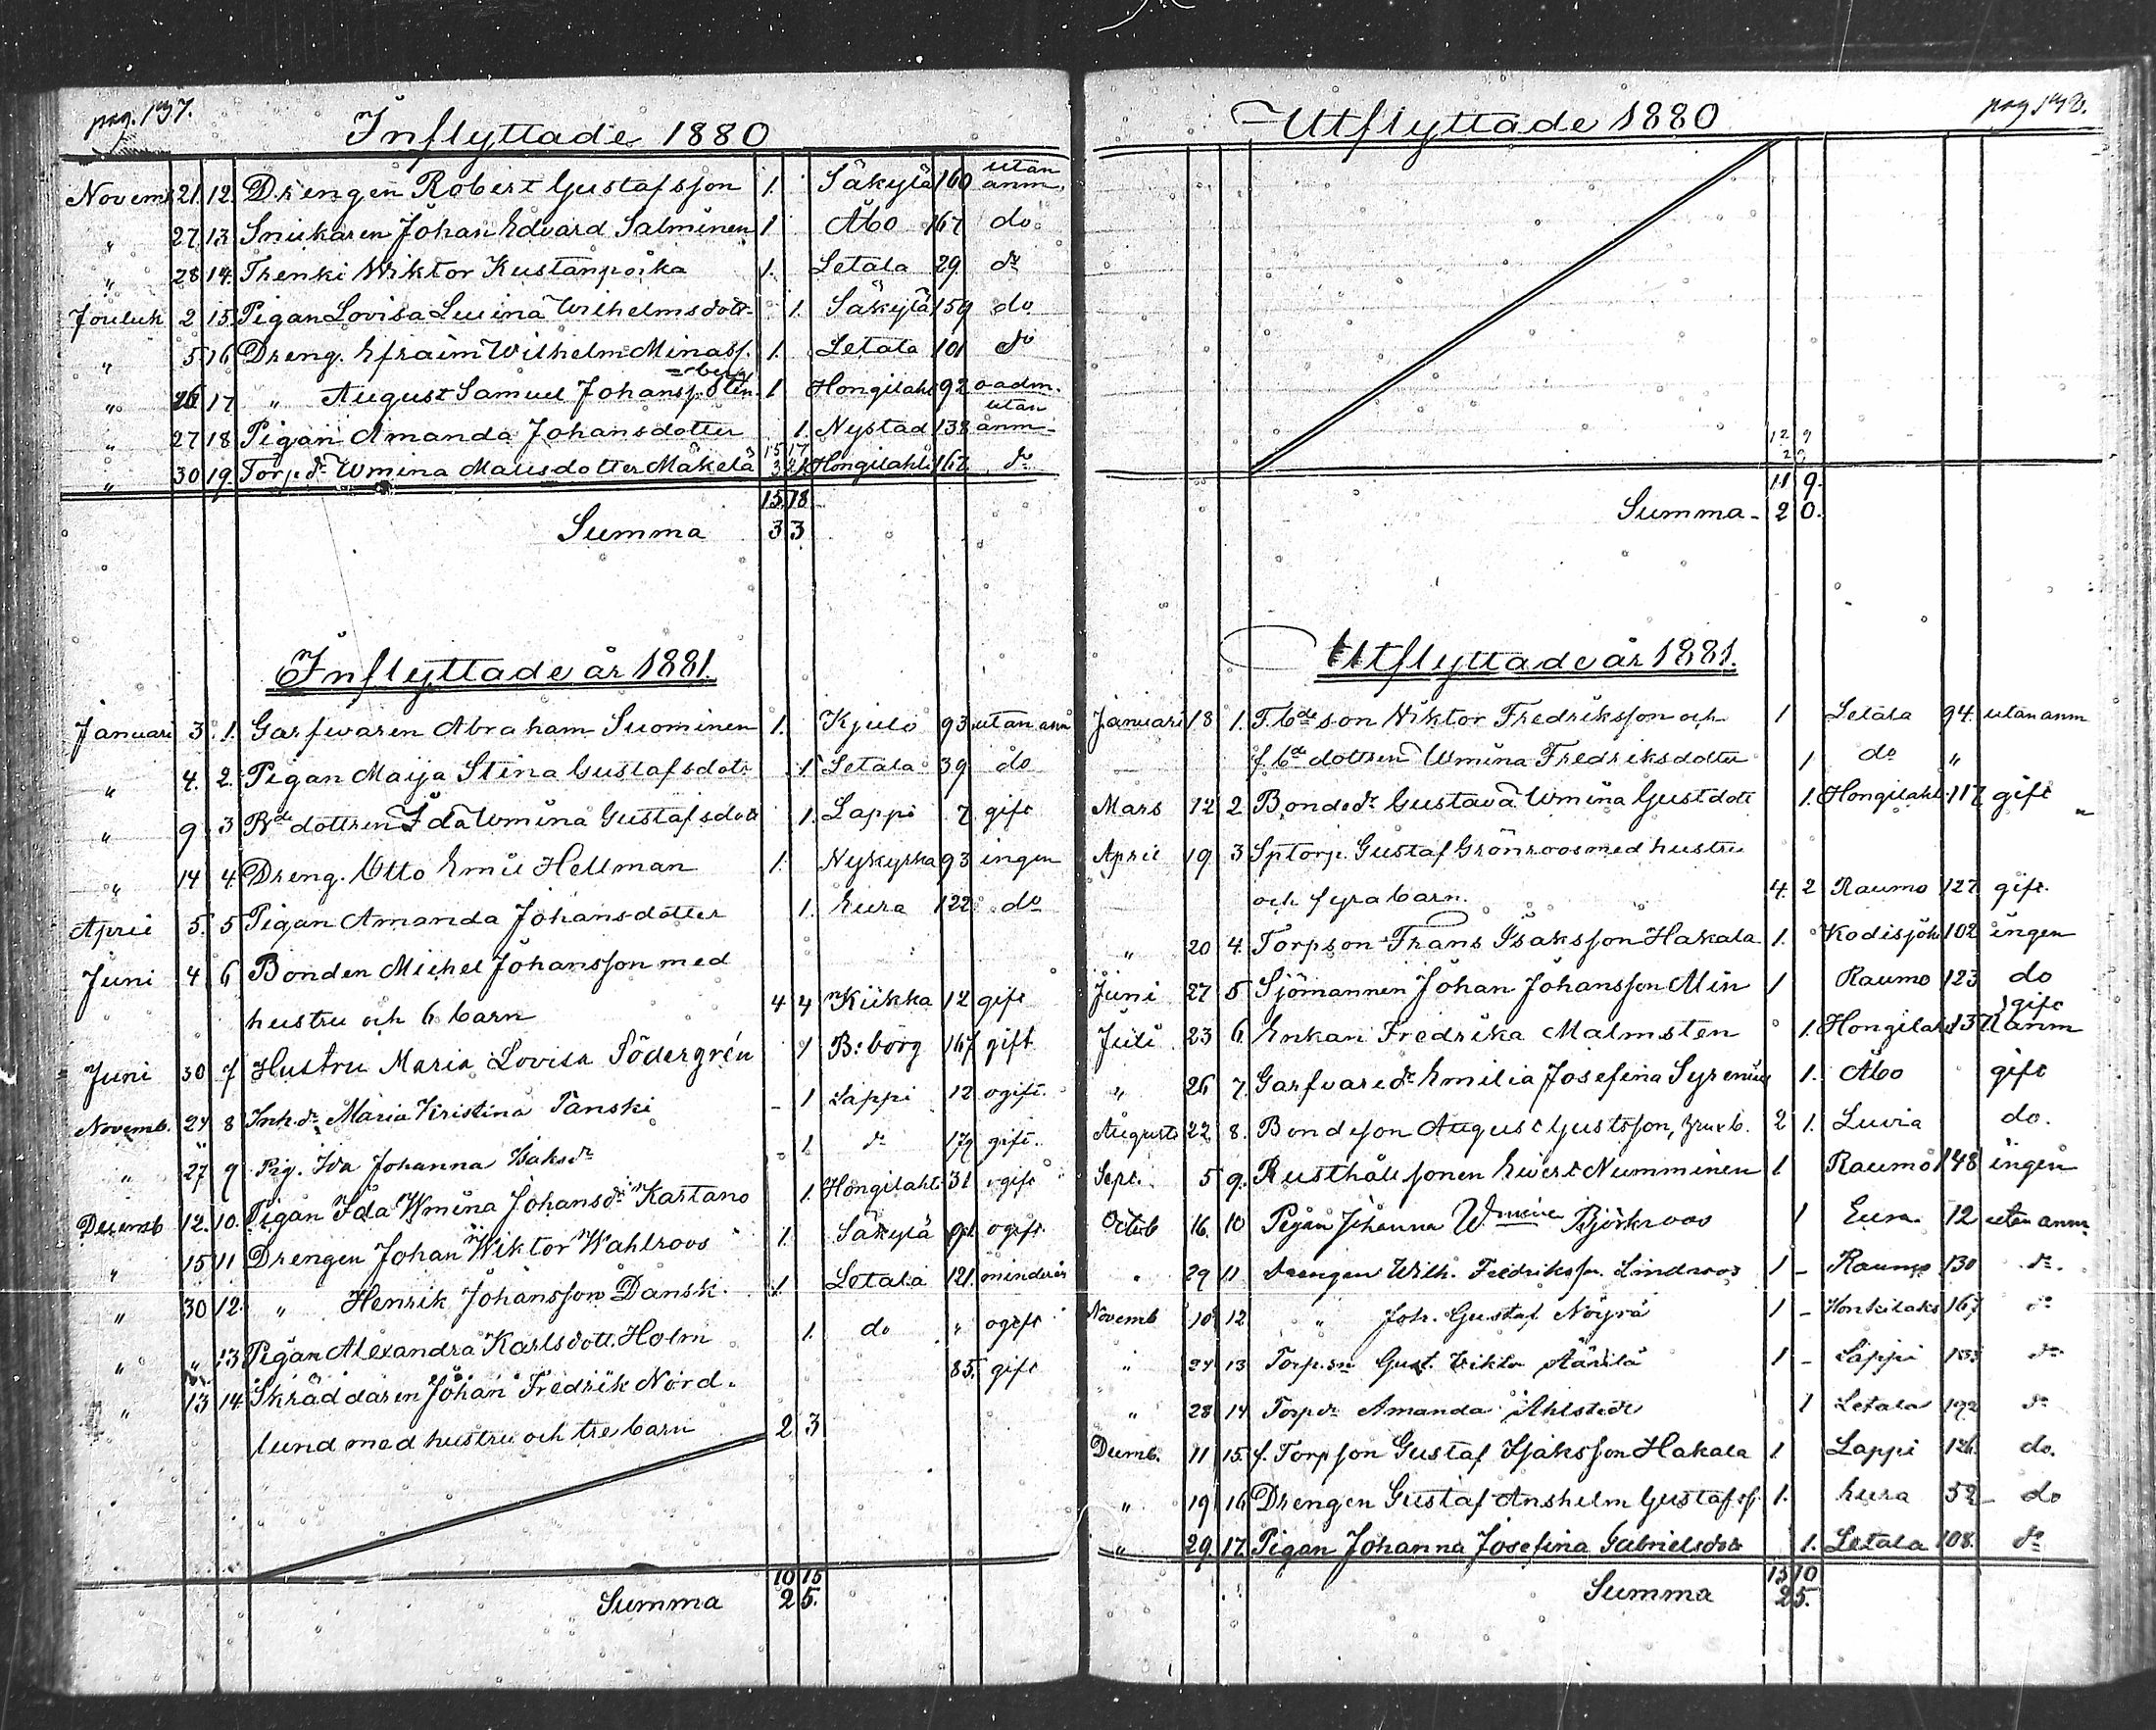 pag. 137.
Inflyttade 1880
Novemb 21. 12. Drengen Robert Gustafsson 1. Säkylä 160 utan anm.
" 27 13 Snickaren Johan Edvard Salminen 1 Åbo 167 do
" 28 14. Thenki Wiktor Kustanpoika 1. Letala 29 do
Jouluk 2 15 Pigan Lovisa Lucina Wilhelmsdott. 1. Säkylä 159 do
" 5 16 Dreng. Efraim Wilhelm Minass. 1. Letala 101 do
" 26 17 " August Samuel Johanss. Sten=berg 1 Hongilaht 92 o adm.
" 27 18 Pigan Amanda Johansdotter 1. Nystad 138 utan anm.
" 30 19. Torp.dr Wmina Mattsdotter Mäkelä 1 Hongilahti 167 do
15 18
Summa 33
Inflyttade år 1881.
Januari 3. 1. Garfvaren Abraham Suominen 1. Kjulo 93 utan anm
" 4. 2. Pigan Maija Stina Gustafsdott 1 Letala 39 do
" 9 3 Bde dottren Ida Wmina Gustafsdott 1. Lappi 7 gift
" 14 4. Dreng. Otto Emil Hellman 1. Nykyrka 93 ingen
April 5. 5 Pigan Amanda Johansdotter 1. Eura 122 do
Juni 4 6 Bonden Michel Johansson med
hustru och 6 barn 4 4 Kiikka 12 gift
Juni 30 7 Hustru Maria Lovisa Södergrén 1 B:borg 167 gift
Novemb. 24 8 Inh.dr Maria Kristina Tanski - 1 Lappi 12 ogift.
" 27 9 Pig. Ida Johanna Isaksdr - 1 do 179 gift.
Decemb 12. 10. Pigan Ida Wmina Johansdr Kartano 1. Hongilaht 31 ogift
" 15 11 Drengen Johan Wiktor Wahlroos 1. Säkylä 91 ogift
" 30 12. " Henrik Johansson Dansk 1 Letala 121. minderår
" " 13 Pigan Alexandra Karlsdott. Holm 1. do " ogift
" 13 14 Skräddaren Johan Fredrik Nord- 85. gift
lund med hustru och tre barn 2 3
10 15
Summa 25.
pag 138.
Utflyttade 1880
12 9
11 9.
Summa 20.
Utflyttade år 1881.
Januari 18 1. T.bde son Wiktor Fredriksson och 1 Letala 94. utan anm
f bde dottren Wmina Fredriksdotter 1 do "
Mars 12 2 Bondedr Gustava Wmina Gustdott 1. Hongilaht 117 gift
April 19 3 Sptorp. Gustaf Grönroos med hustru
och fyra barn. 4. 2 Raumo 127 gift.
" 20 4. Torpson Frans Isaksson Hakala 1. Kodisjoki 102 ingen
Juni 27 5 Sjömannen Johan Johansson Alin 1 Raumo 123 do
Juli 23 6. Enkan Fredrika Malmsten 1. Hongilaht 137 gift anm
" 26 7. Garfvaredr Emilia Josefina Syrenius 1. Åbo gift
Augusti 22 8. Bondeson August Gustsson, hru x b. 2 1. Luvia do.
Sept. 5 9. Rusthåll sonen Evert Numminen 1 Raumo 148 ingen
Octob 16. 10 Pigan Johanna Wmina Björkroos 1 Eura 12 utan anm.
" 29 11 Drengen Wilh. Fredriksson Lindroos 1 - Raumo 130 do.
Novemb 10 12 " Joh. Gustaf Nöyrä 1 - Honkilaks 167 do
" 24 13 Torp.sn Gust. Viktor Äärilä 1 - Lappi 133 do
" 28 14 Torpdr Amanda Ahlstedt 1 Letala 192 do
Decmb. 11 15. f. Torpson Gustaf Isaksson Hakala 1. Lappi 126. do.
" 19 16 Drengen Gustaf Anshelm Gustafsf. 1. Eura 52 do
" 29. 17. Pigan Johanna Josefina Gabrielsdott 1. Letala 108. do
15 10
Summa 25.